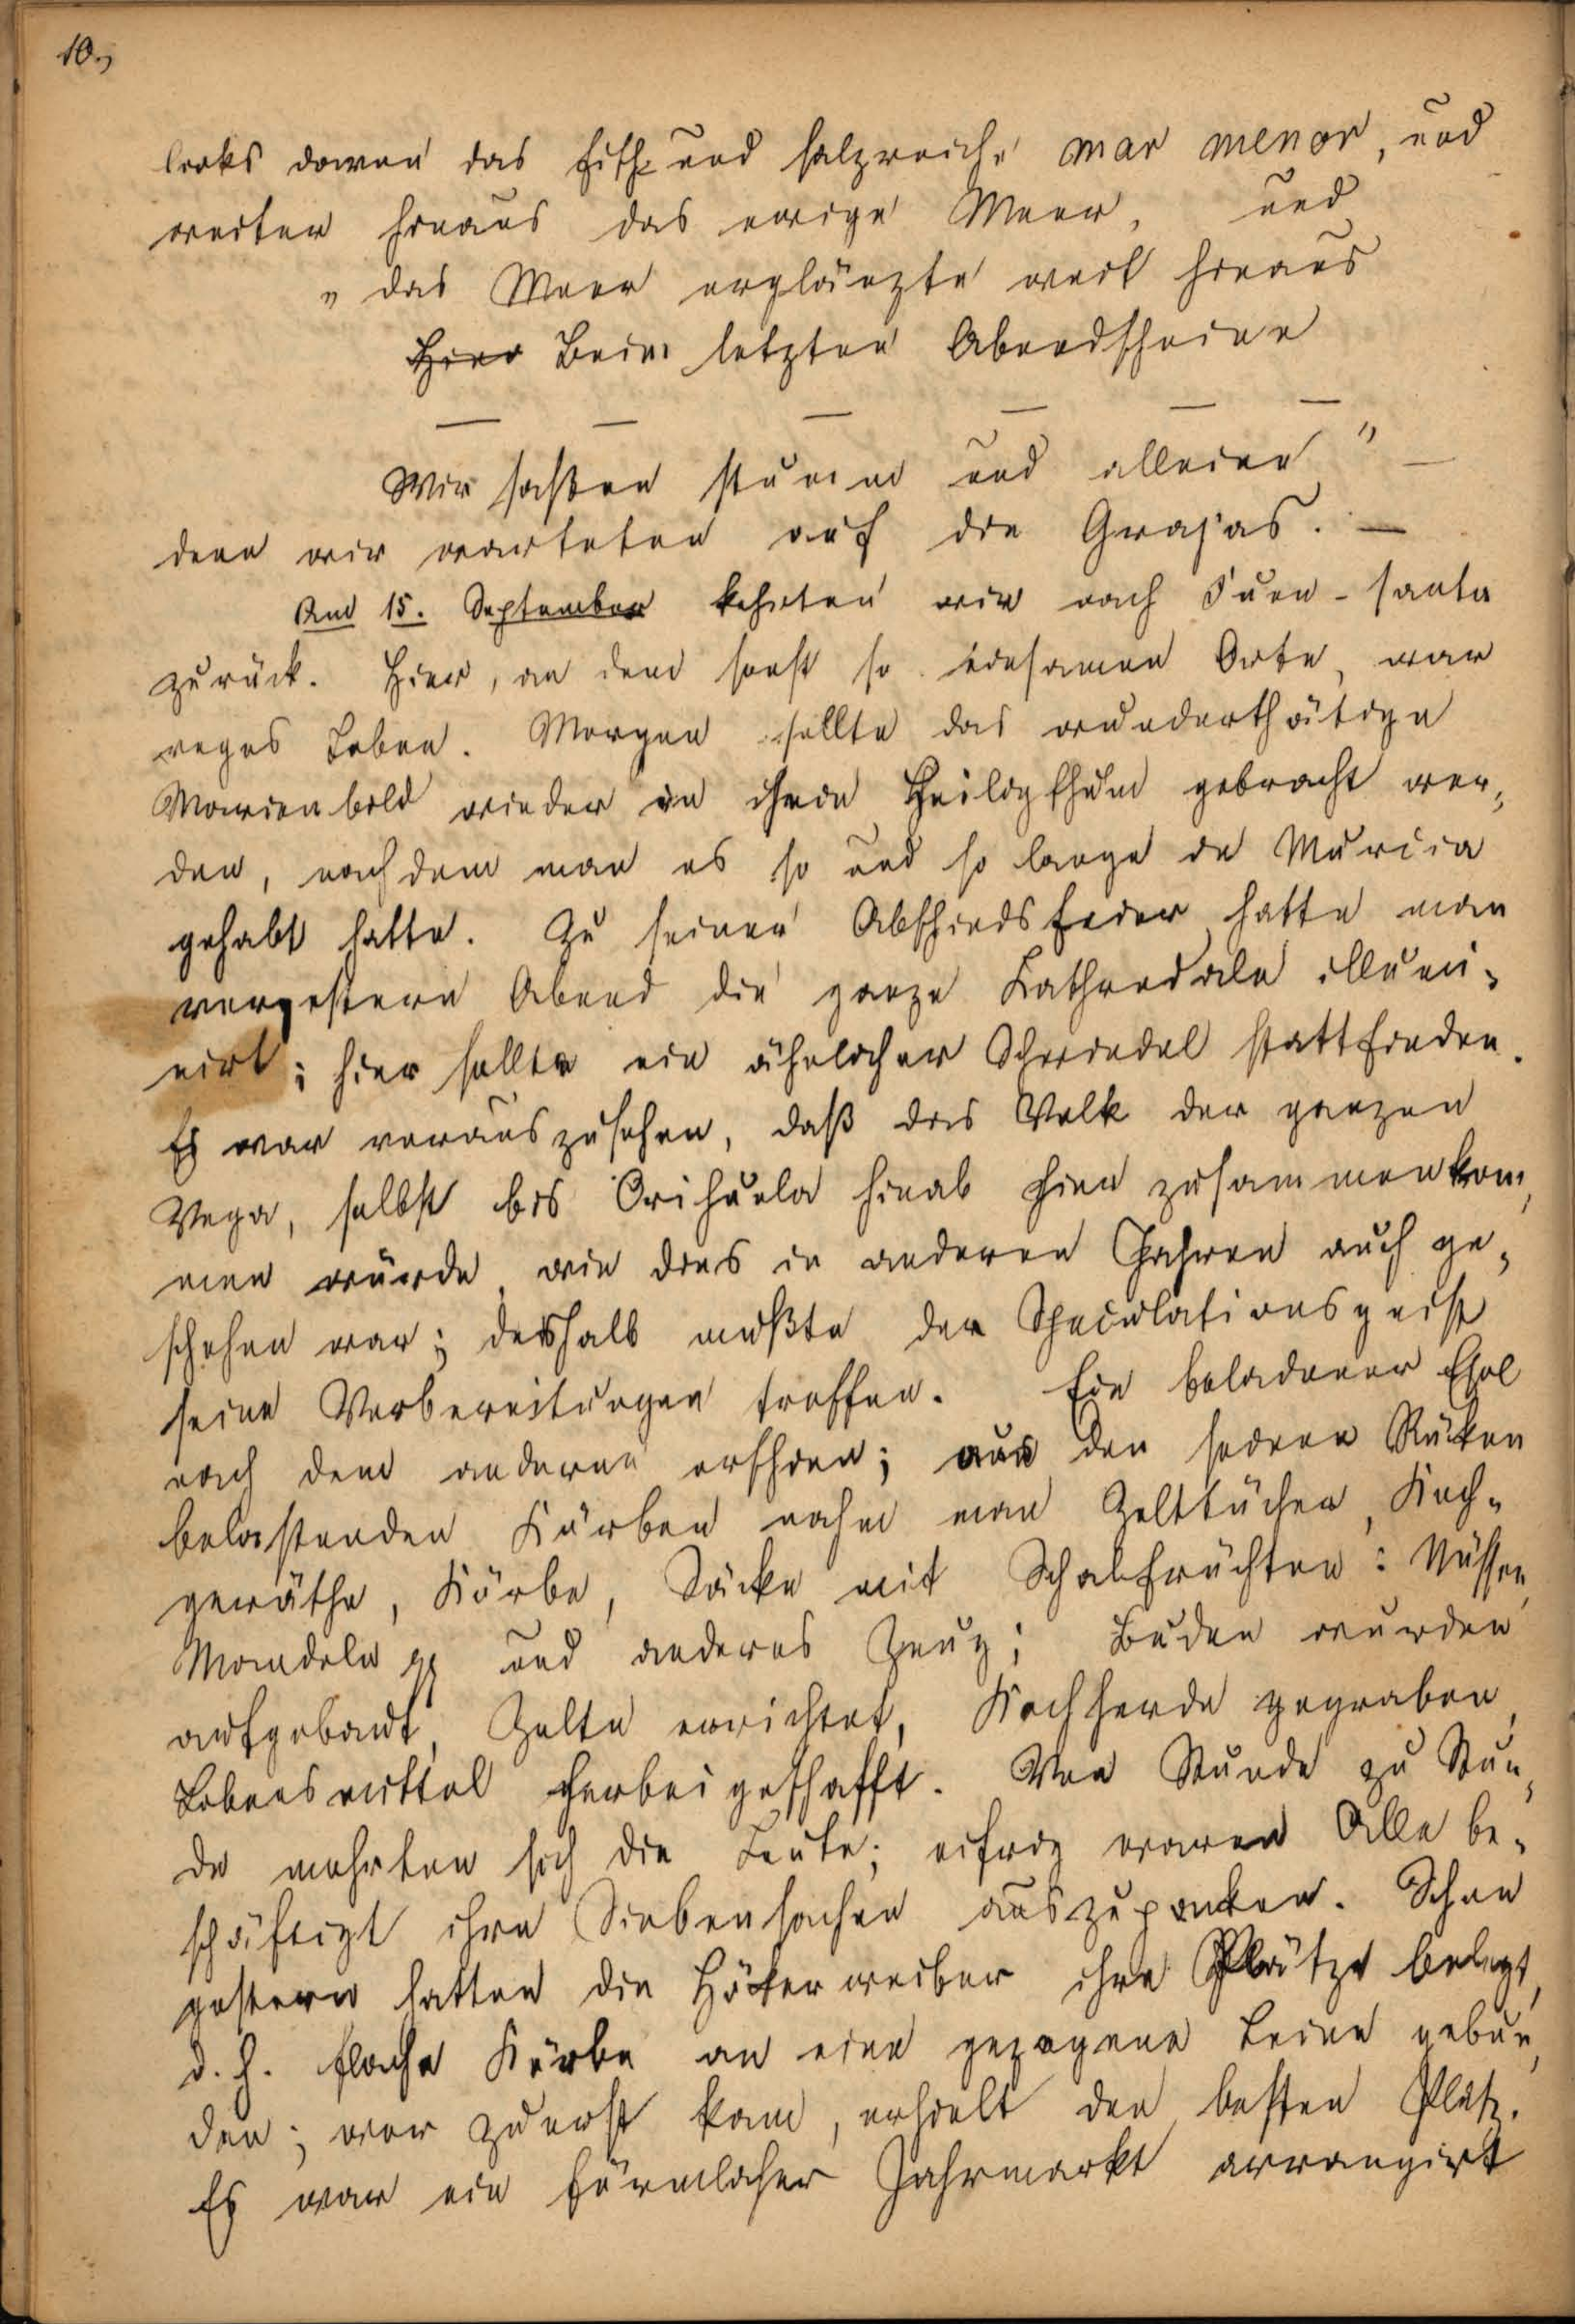 10.,
links davon das fisch- und salzreiche mar menor, und
weiter hinaus das ewige Meer, und
„das Meer erglänzte weit hinaus
Hier Beim letzten Abendscheine
— — — — — —
Wir saßen stumm und alleine" —
denn wir warteten auf die Grajas. —
Am 15. September kehrten wir nach Fuen-santa
zurück. Hier, an dem sonst so einsamen Orte, war
reges Leben. Morgen sollte das wunderthätige
Marienbild wieder in ihrem Heiligthum gebracht wer-
den, nachdem man es so und so lange in Murcia
gehabt hatte. Zu seiner Abschiedsfeier hatte man
vorgestern Abend die ganze Kathredale illumi-
nirt; hier sollte ein ähnlicher Schwindel stattfinden.
Es war vorauszusehen, daß das Volk der ganzen
Vega, selbst bis Orihuela hinab hier zusammenkom-
men würde, wie dies in anderen Jahren auch ge-
schehen war; deshalb mußte der Speculationsgeist
seine Vorbereitungen treffen. Ein beladener Esel
nach dem anderen erschien; aus den seinen Rücken
belastenden Körben nahm man Zelttücher, Koch-
geräthe, Körbe, Säcke mit Schalfrüchten: Nüssen,
Mandeln pp und anderes Zeug; Buden wurden
aufgebaut, Zelte errichtet, Kochherde gegraben,
Lebensmittel herbeigeschafft. Von Stunde zu Stun-
de mehrten sich die Leute; eifrig waren Alle be-
schäftigt ihre Siebensachen auszupacken. Schon
gestern hatten die Hökerweiber ihre Plätze belegt,
d. h. flache Körbe an eine gezogene Leine gebun-
den; wer zuerst kam, erhielt den besten Platz.
Es war ein förmlicher Jahrmarkt arrangirt